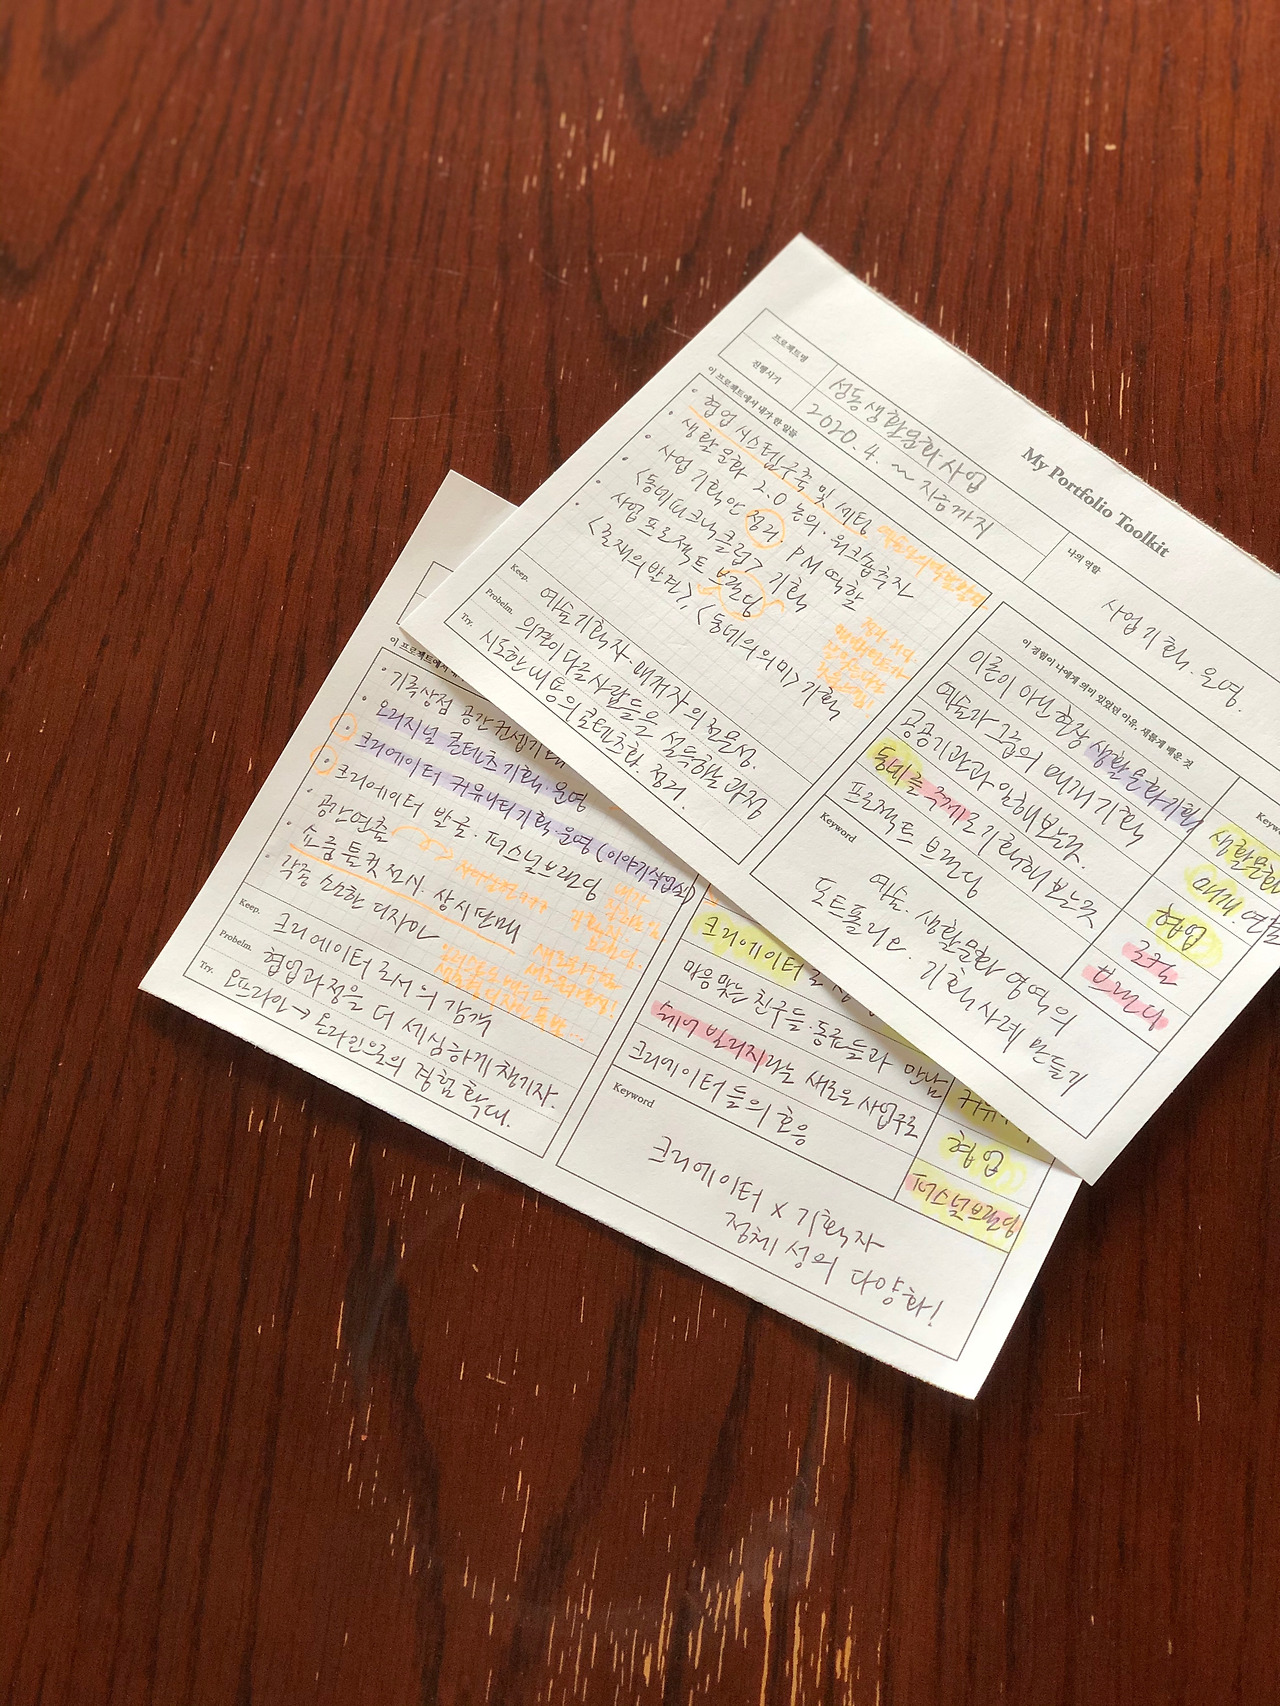 My Portfolio Toolkit
프로젝트명
성동생활문화사업
진행시기
2020. 4. ~ 지금까지
나의 역할
사업기획. 운영.
이 프로젝트에서 내가 한 일들
· 협업 시스템구축 및 세팅
· 생활문화 2.0 논의. 워크숍추진
· 사업 기획안 정리. PM 역할
· <동네다크나클럽> 기획
· 사업 프로젝트 브랜딩
<존재의발견>, <동네의의미> 기획
Keep.
예술기획자. 매개자의 전문성.
Probelm.
의견이 다른 사람들을 설득하는 과정
Try.
시도한 내용의 콘텐츠화. 정리.
이 경험이 나에게 의미 있었던 이유, 새롭게 배운 것
이론이 아닌 현장 생활문화기획
예술과 그룹의 매개 기획
공공기관과 일해본 것.
동네를 주제로 기획해본 것
프로젝트 브랜딩
생활문화
매개. 연결
협업
로컬
브랜딩
Keyword
예술. 생활문화 영역의
포트폴리오. 기획 사례 만들기
이 프로젝트에서
· 기록상점 공간 컨셉기획
· 오리지널 콘텐츠 기획. 운영
· 크리에이터 커뮤니티 기획. 운영 (이야기작업실)
· 크리에이터 발굴. 퍼스널브랜딩
공간연출
· 쇼룸 툴킷 전시. 상시판매
· 각종 소소한 디자인
Keep.
크리에이터로서의 감각
Probelm.
협업과정을 더 세심하게 챙기자.
Try.
오프라인 → 온라인으로의 경험 확대.
크리에이터로
마음맞는 친구들. 동료들과 만남
쉐어 빌리지라는 새로운 사업구조
크리에이터들의 호응
협업
퍼스널브랜딩
Keyword
크리에이터 x 기획자
정체성의 다양화!